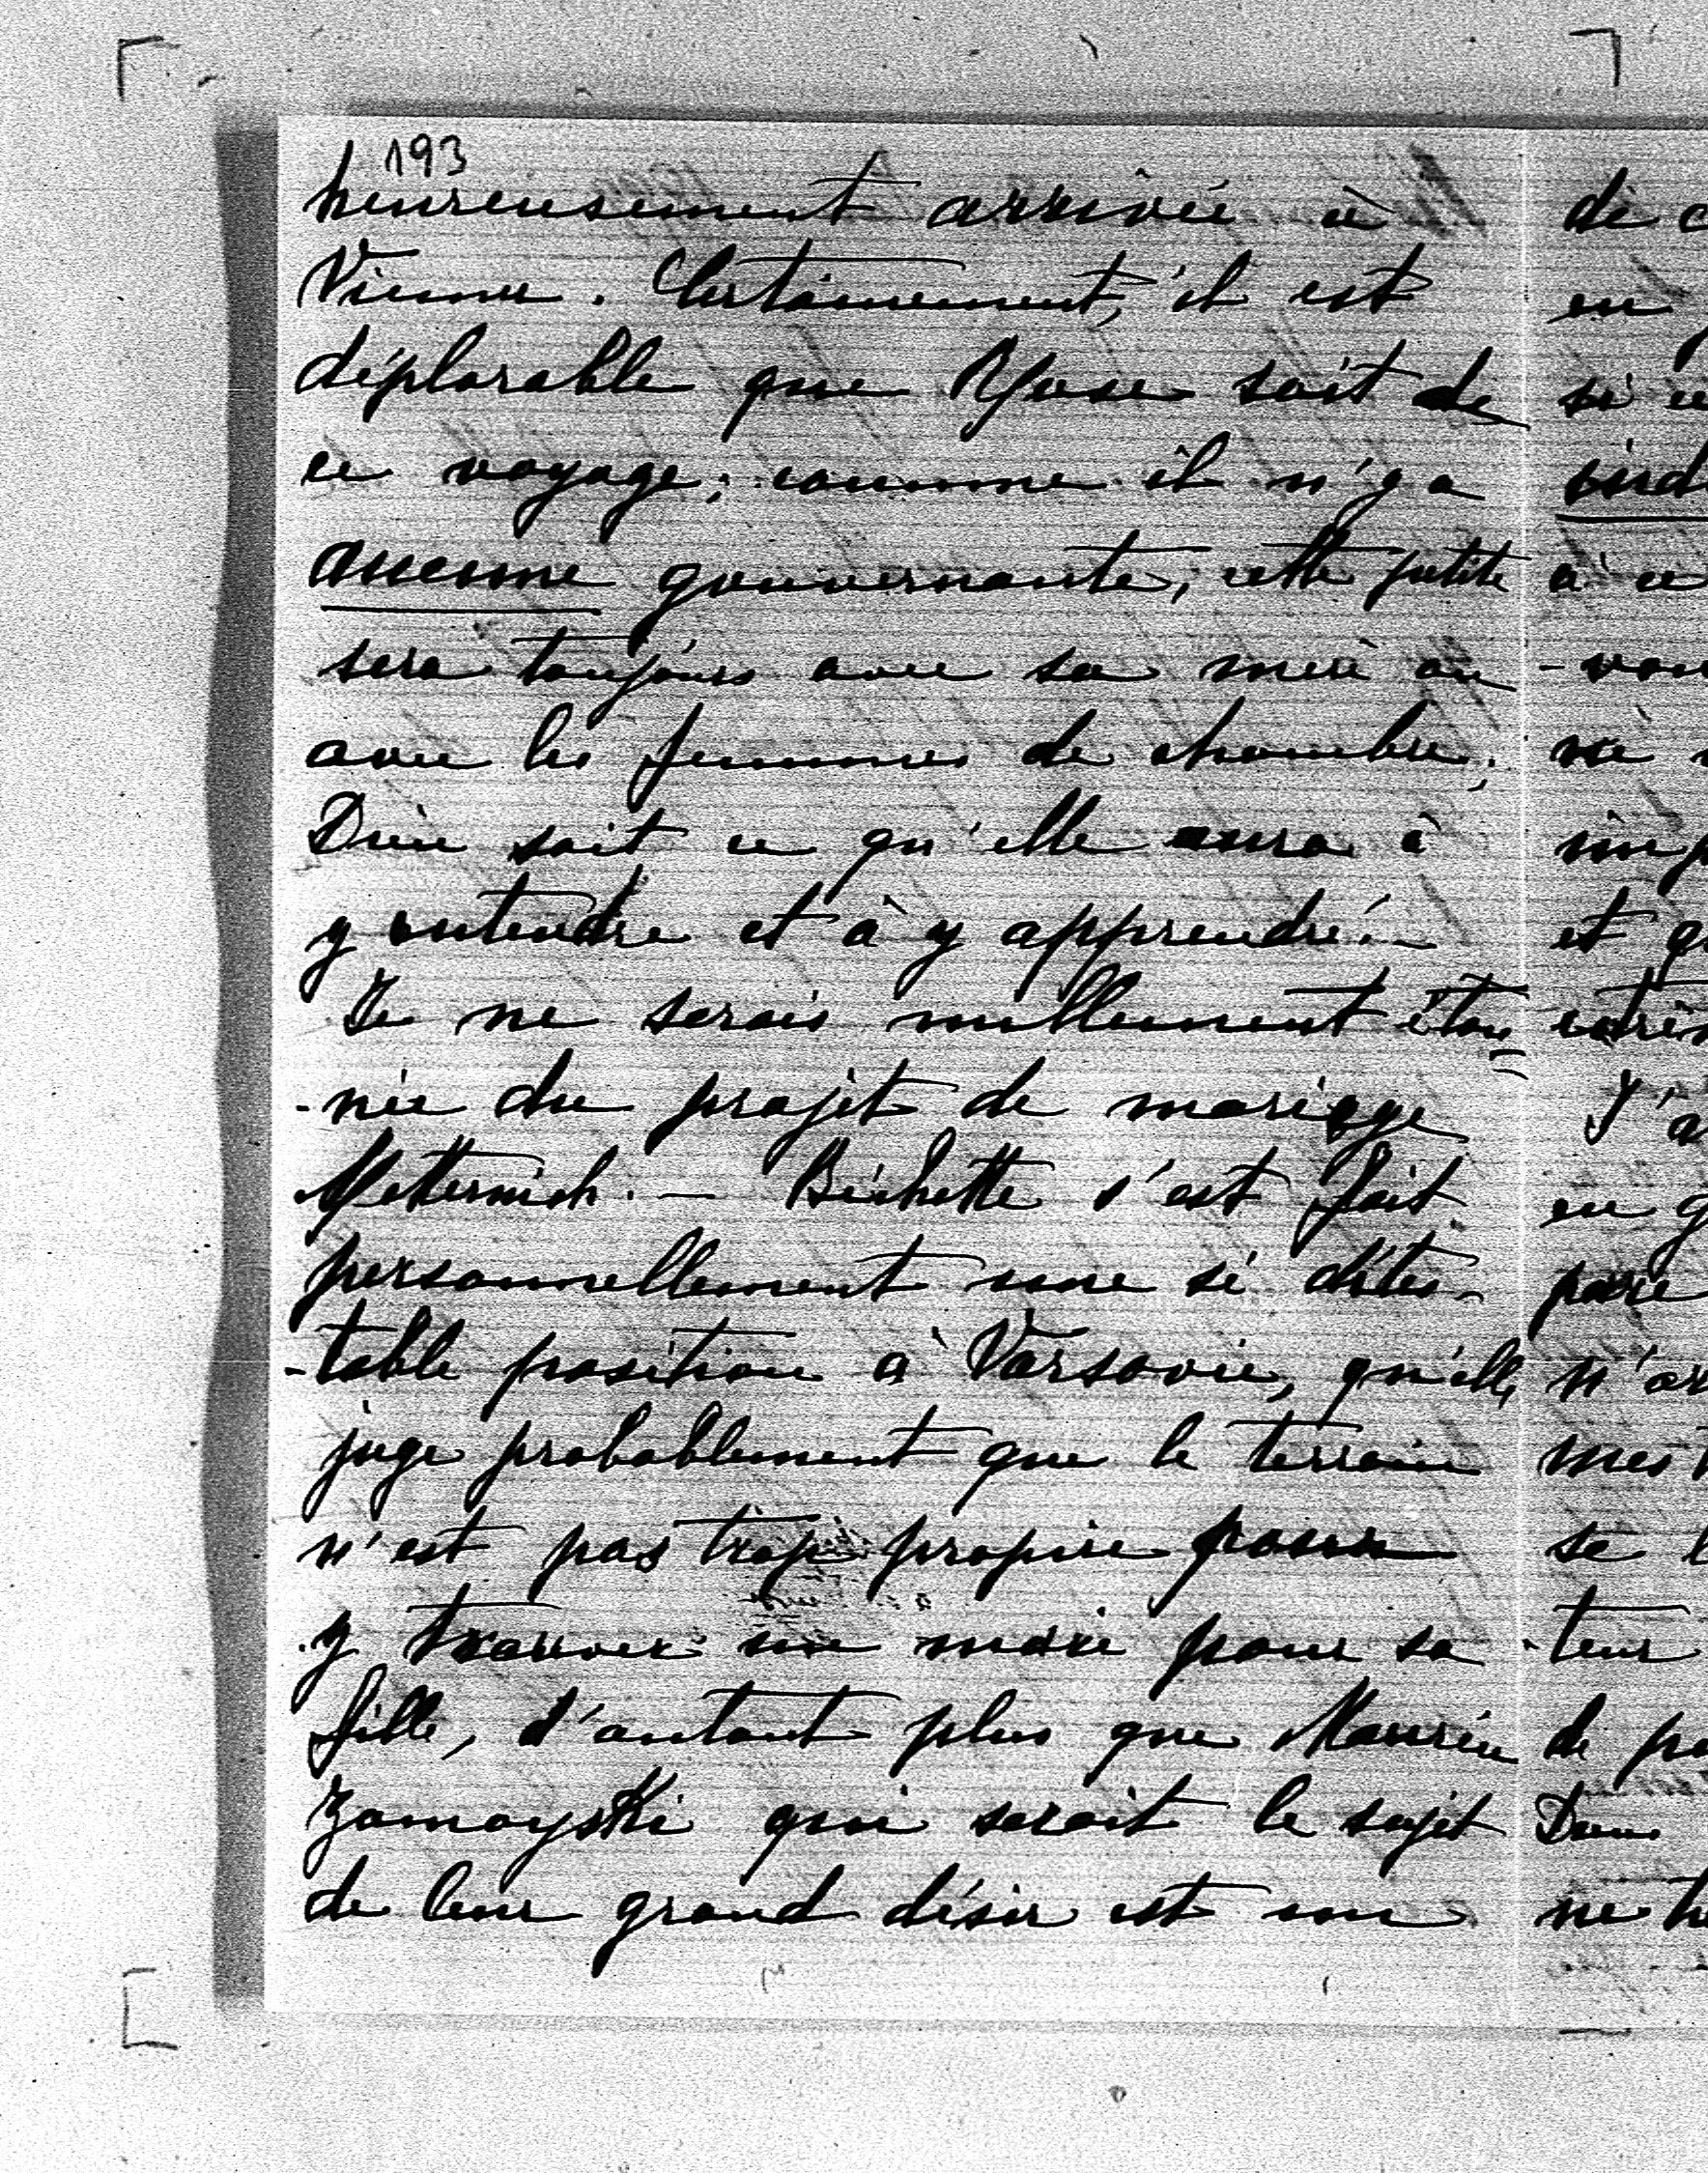 193
heureusement arrivée à
Vienne. Certainement, il est
déplorable que Rose soit de
ce voyage; comme il n'y a
aucune gouvernante, cette petite
sera toujours avec sa mère ou
avec les femmes de chambre;
Dieu sait ce qu'elle aura à
y entendre et à y apprendre! –
Je ne serais nullement éton-
-née du projet de mariage
Metternich. – Bichette s'est fait
personnellement une si détes-
-table position à Varsovie, qu'elle
juge probablement que le terrain
n'est pas trop propice pour
y trouver un mari pour sa
fille, d'autant plus que Maurice
Zamoyski qui serait le sujet
de leur grand désir est un
de
en
si
à ce
-vou
ne
imp
et q
J'a
en g
n'
mes
se
-teur
de
Dieu
ne